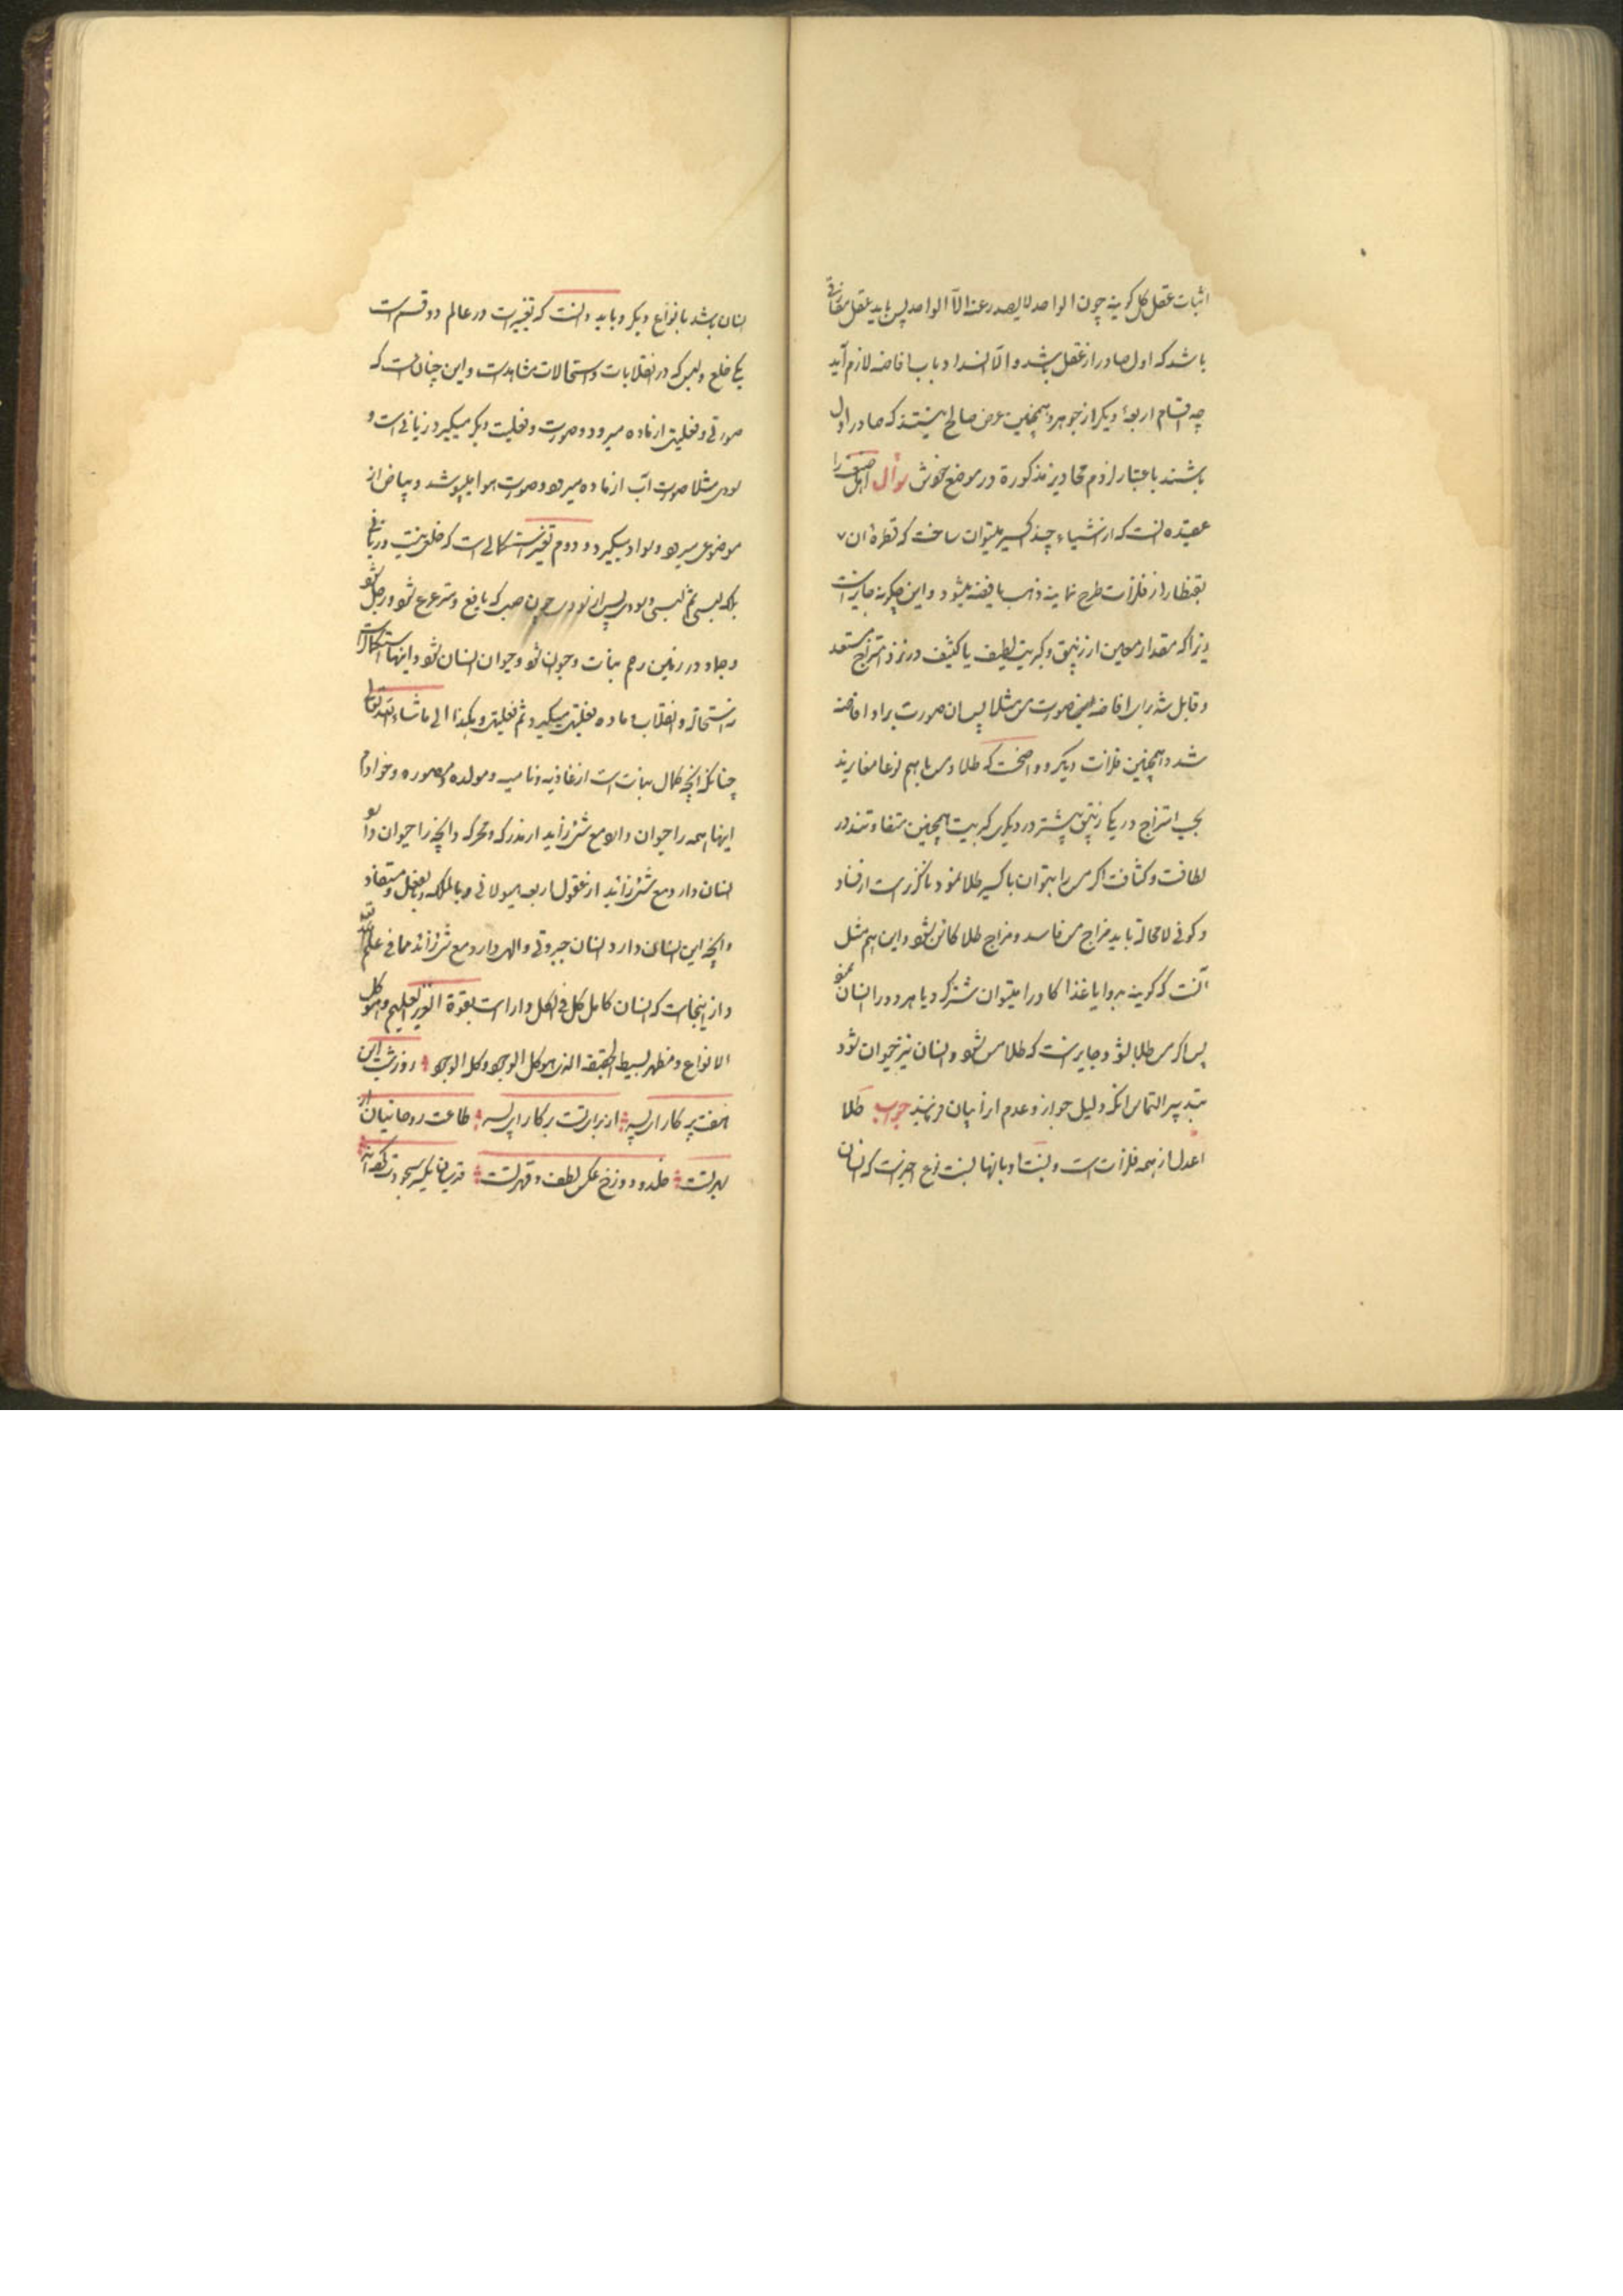 اثبات عقل کل گویند چون الواحد لا یصدر عنه الا الواحد پس باید عقل مفارقی
باشد که اول صادر از عقل باشد و الا انسداد باب افاضه لازم آید
چه اقسام اربعهٔ دیگر از جوهر و همچنین عرض صالح نیستند که صادر اول
باشند باعتبار لزوم محاذیر مذکورة در موضع خویش سؤال اهل صنعت را
عقیده انست که از اشیاء چند اکسیر میتوان ساخت که قطرهٔ ان
بقنطار از فلزات طرح نمایند ذهب یا فضه میشود و این چگونه جایز است
زیرا که مقدار معین از زیبق و کبریت لطیف یا کثیف در نزد امتزاج مستعد
و قابل شد برای افاضه فیض صورت مس مثلا پس ان صورت بر او افاضه
شد و همچنین فلزات دیگر و واضحست که طلا و مس با هم نوعا مغایرند
بحسب امتزاج در یکی زیبق بیشتر در دیگری کبریت همچنین متفاوتند در
لطافت و کثافت اگر مس را بتوان باکسیر طلا نمود ناگزیر است از فساد
و کونی لا محالة باید مزاج مس فاسد و مزاج طلا کائن شود و این هم مثل
آنست که گویند بدوا یا غذا گاو را میتوان شتر کرد یا هر دو را انسان نمود
پس اگر مس طلا بشود جایز است که طلا مس شود و انسان نیز حیوان شود
بتدبیر التماس انکه دلیل جواز و عدم انرا بیان فرمایند جواب طلا
اعدل از همه فلزات است و نسبت او بانها نسبت نوع اخیر است که انسان
انسان باشد بانواع دیگر و باید دانست که تغییرات در عالم دو قسم است
یکی خلع و لبس که در انقلابات و استحالات مشاهد است و این چنان است که
صورتی و فعلیتی از ماده میرود و صورت و فعلیت دیگر میگیرد زیانی است و
سودی مثلا صورت آب از ماده میرود و صورت هوا میپوشد و بیاض از
موضوعی میرود و سواد میگیرد و دوم تغییر استکمالی است که خلع نیست و زیانی
بلکه لبسی ثم لبسی و سودی پس از سودی چون صبی که یافع و مترعرع شود و رجل شود
و جماد در زمین رحم نبات و حیوان شود و حیوان انسان شود و اینها استکمالات
نه استحاله و انقلاب ماده فعلیتی میگیرد ثم فعلیتی و هکذا الی ما شاء الله تعالی
چنانکه انچه کمال نبات است از غاذیه و نامیه و مولده و مصوره و خوادم
اینها همه را حیوان دارد مع شئ زاید از مدرکه و محرکه و انچه را حیوان دارد
انسان دارد مع شئ زائد از عقول اربعه هیولانی و بالملکه و بالفعل و مستفاد
و انچه این انسان دارد انسان جبروتی و الهی دارد مع شئ زائد مما فی علم الله
و از اینجاست که انسان کامل کل فی الکل و دارا است بقوة العزیز العلیم و هو کل
الانواع و مظهر بسیط الحقیقة الذی هو کل الوجود و کله الوجود روز شب این
هفت پرگار ای پسر از برای تست بر کار ای پسر طاعت روحانیان از
بهر تست خلد و دوزخ عکس لطف و قهر تست قدسیان یکسر سجودت کرده‌اند